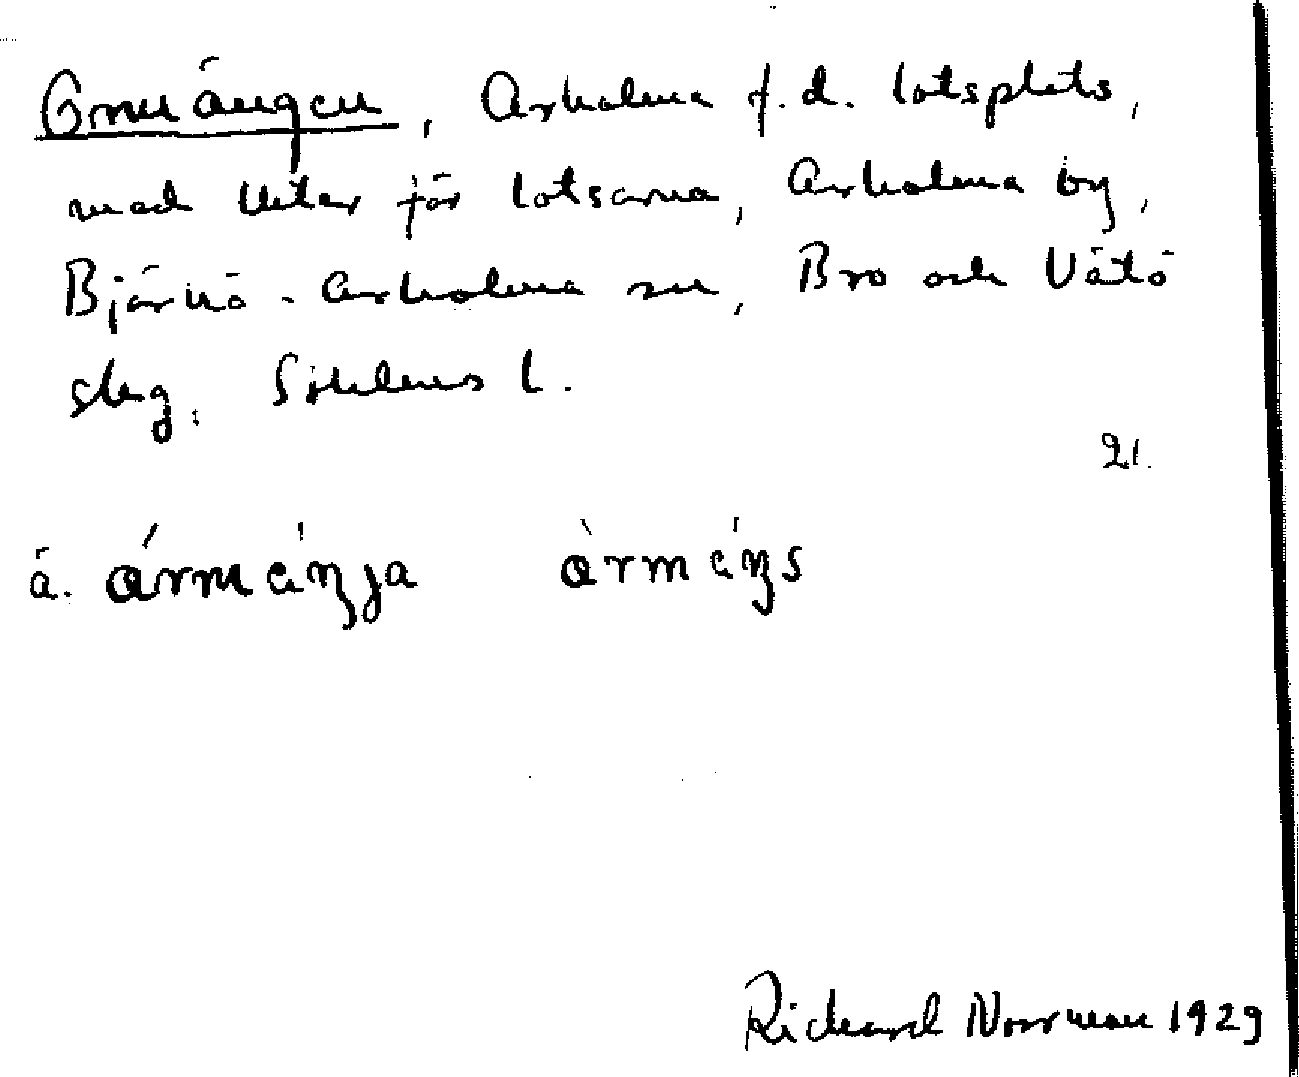 Ormängen, Arholma f.d. lotsplats,
med hus för lotsarna, Arholma by,
Björkö-Arholma sn, Bro och Vätö
slag, Sthlms l.
21.
å. ármäŋja àrmäŋs
Richard Norrman 1929